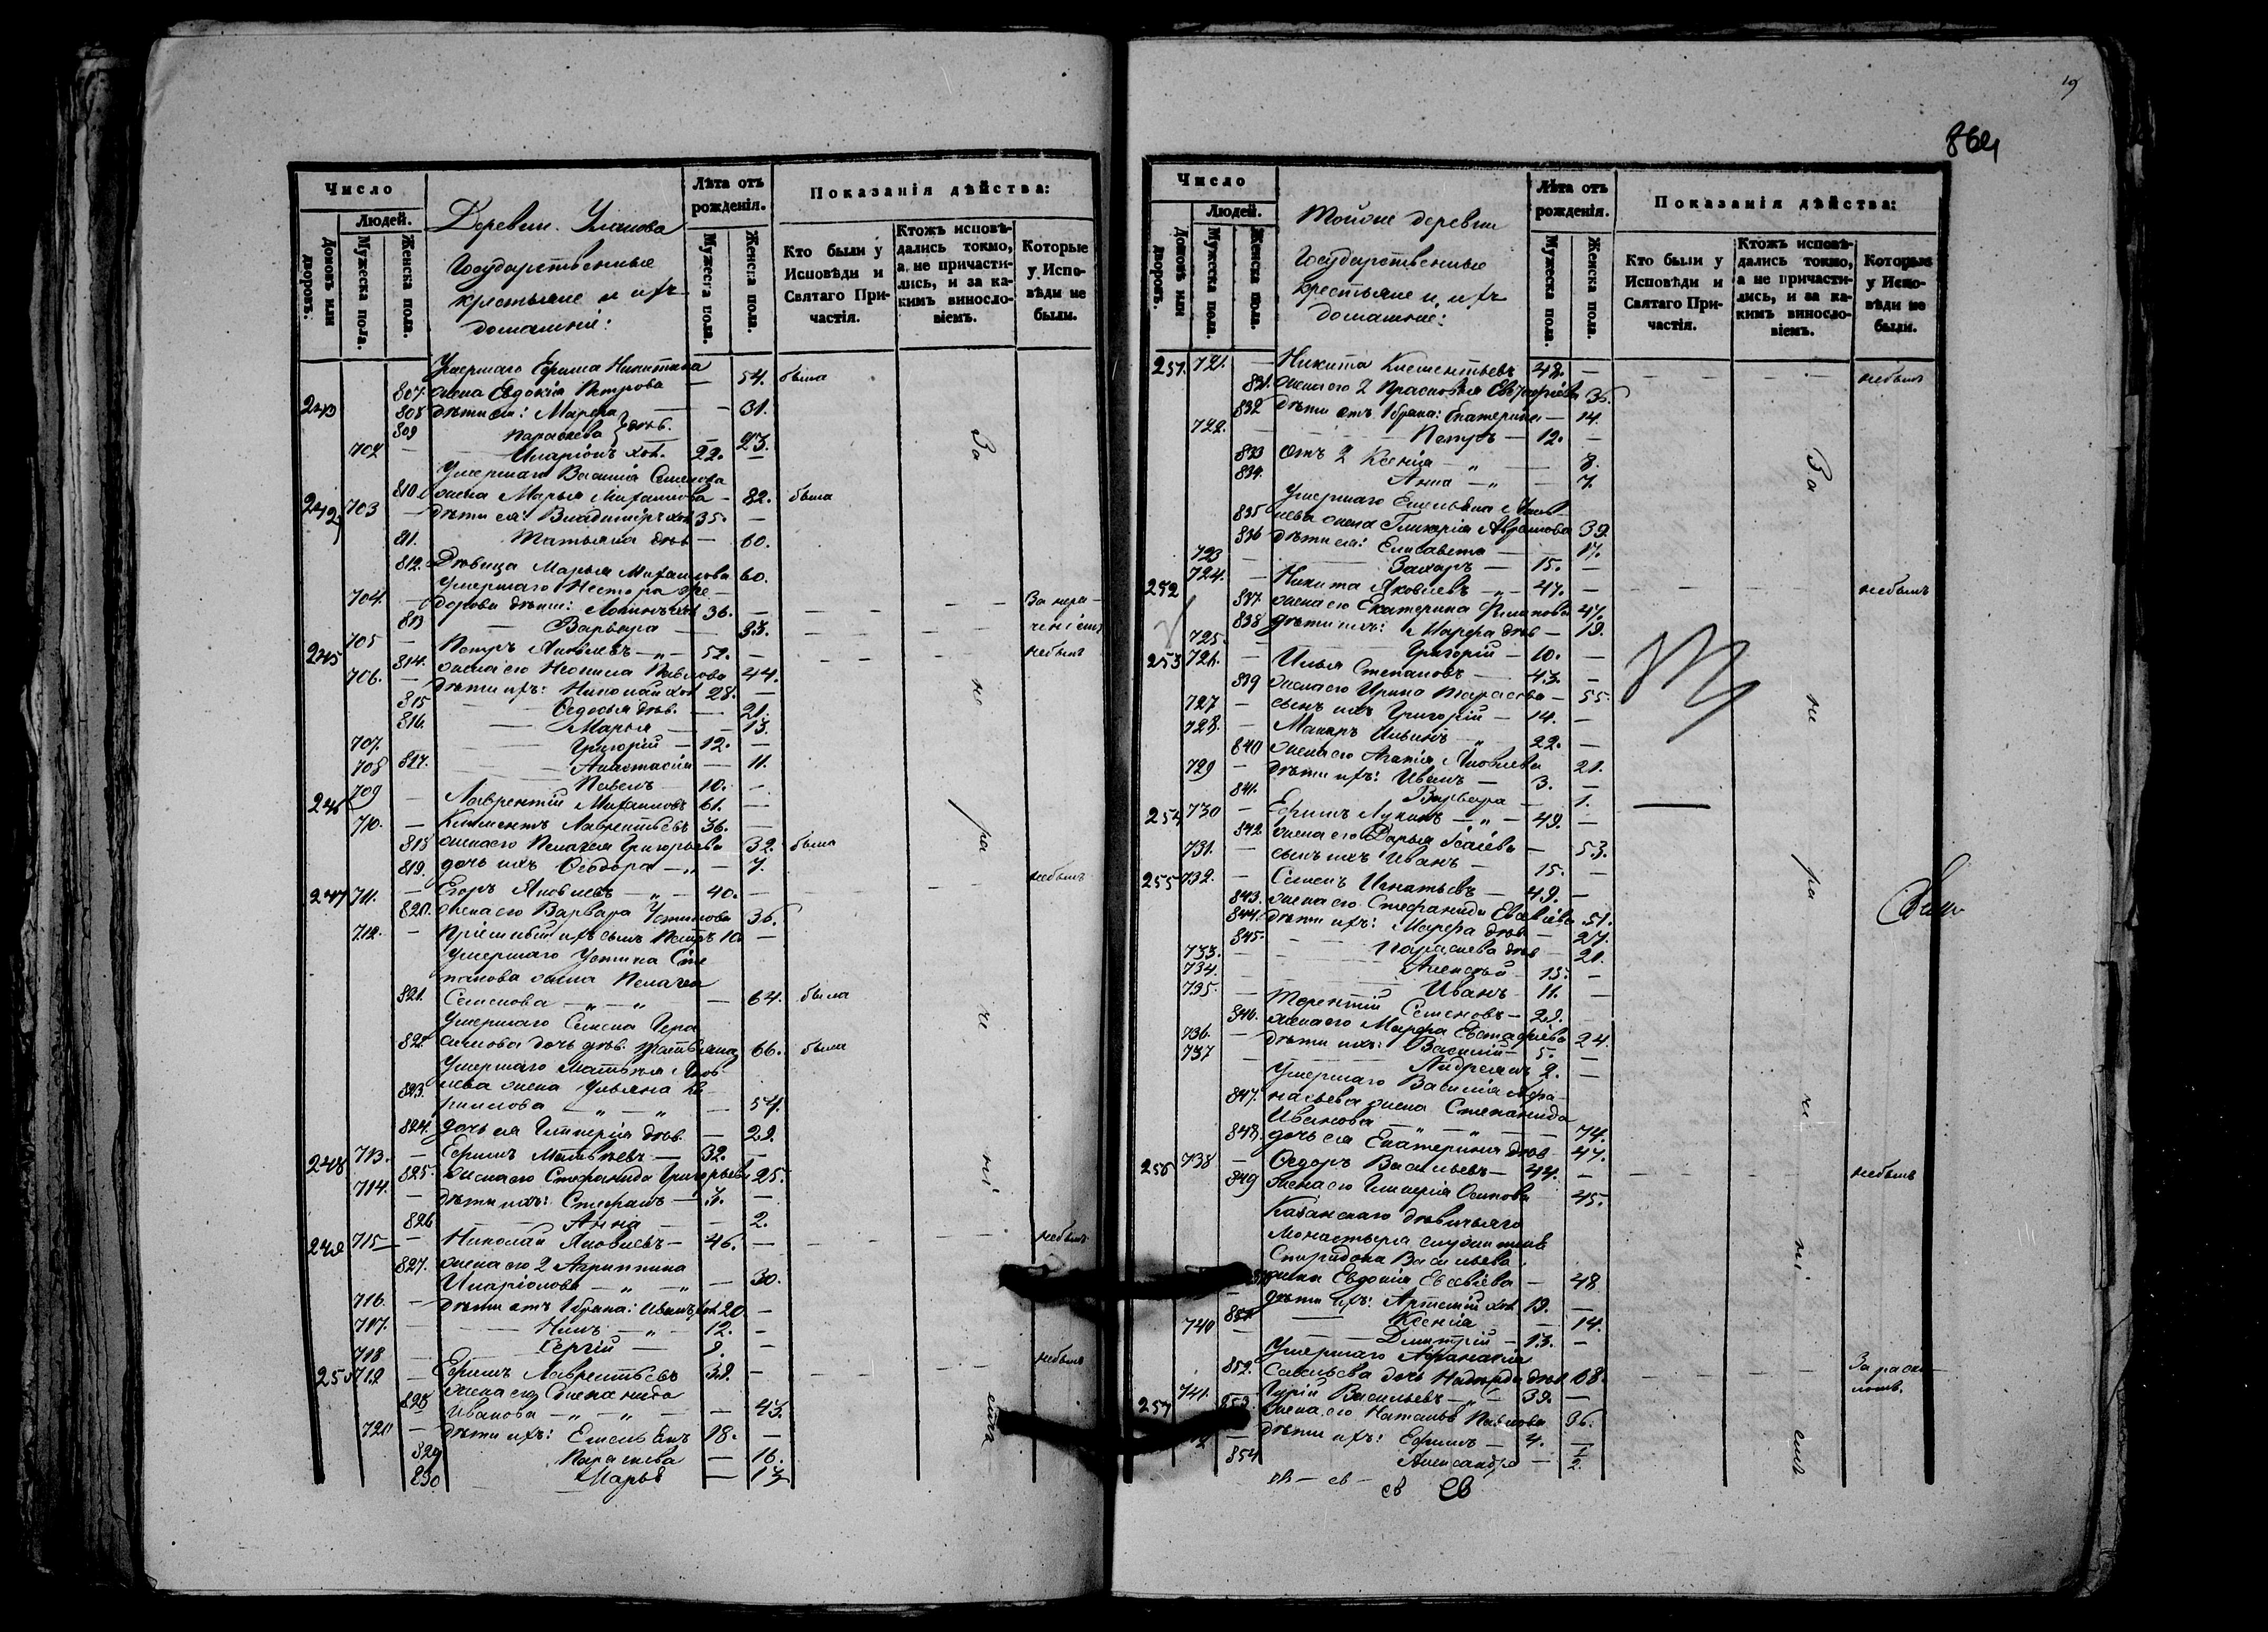 Число
Людей.
Домовъ или дворовъ.
Мужеска пола.
Женска пола.
Деревни Уланова
Государственные
крестьяне и ихъ
домашніе:
Лѣта отъ рожденія.
Мужеска пола.
Женска пола.
Показанія дѣйства:
Кто были у Исповѣди и Святаго При-частія.
Ктожъ исповѣ-дались токмо, а не причасти-лись, и за ка-кимъ виносло-віемъ.
Которые у Испо-вѣди не были.
Умершаго Ефима Никитина
807. жена Евдокія Петрова — 54. была
243 808 дѣти ея: Марѳа — 31.
809 Параскева дѣв. — 23.
702 — Иларіонъ хол. 22. —
Умершаго Василія Семенова
810. жена Марья Михаилова — 82. была
703 — дѣти ея: Владиміръ хол 35. —
81. Татьяна дѣв — 60.
812. Дѣвица Марья Михаилова 60.
Умершаго Нестора Ѳе-
704. — дорова дѣти: хол 36. —
813 Варвара — 33.
245 705 — Петръ Яковлевъ — 52. — небылъ
814. жена его Неонила Павлова 44.
706. — дѣти ихъ: Николай хол 28. —
815 Ѳедосья дѣв. — 21.
816. Марья — 13.
707. Григорій — 12. —
817. Анастасія — 11.
708 Павелъ — 10. —
246 709 — Лаврентій Михаиловъ 61. —
710. — Климентъ Лаврентьевъ 36. —
818 жена его Пелагея Григорьева 32. была
819. дочь ихъ Ѳеодора — 7.
247 711. — Егоръ Яковлевъ — 40. — небылъ
820. жена его Варвара Устинова 36.
712. — Пріемный ихъ сынъ Петръ 10 —
Умершаго Устина Сте
панова жена Пелагея
821. Семенова — 64. была
Умершаго Семена Гера
822. симова дочь дѣв. Татьяна 66. была
Умершаго Матвѣя Яков
823. лева жена Ульяна Ки
риллова — 54.
824. дочь ея Гликерія дѣв. — 29.
248 713. — Ефимъ Матвѣевъ — 32. —
825. жена его Стефанида Григорьева 25.
714. — дѣти ихъ: Стефанъ — 7. —
826 Анна — 2.
249 715 — Николай Яковлевъ — 46. — небылъ
827. жена его 2 Агриппина
Иларіонова — 30.
716. — дѣти отъ 1 брака: Иванъ хол 20. —
717. Нилъ — 12. —
718 Сергій — 9. —
719 — Ефимъ Лаврентьевъ 39. — небылъ
828 жена его Степанида
Иванова — 43.
720 — дѣти ихъ: Емельянъ 18. —
829 Параскева — 16.
830 Марья — 13
За не ра че ні емъ
19
864
Число
Людей.
Домовъ или дворовъ.
Мужеска пола.
Женска пола.
Тойже деревни
Государственные
крестьяне и ихъ
домашніе:
Лѣта отъ рожденія.
Мужеска пола.
Женска пола.
Показанія дѣйства:
Кто были у Исповѣди и Святаго При-частія.
Ктожъ исповѣ-дались токмо, а не причасти-лись, и за ка-кимъ виносло-віемъ.
Которые у Испо-вѣди не были.
251. 721. — Никита Климентьевъ 48. — небылъ
831. жена его 2 Прасковья 36.
832 дѣти отъ 1 брака: Екатерина — 14.
722. Петръ — 12. —
833 Отъ 2 Ксенія — 8.
834. Анна — 7.
Умершаго Емельяна Яков
835 лева жена Гликерія Аврамова 39.
836 дѣти ея: Елисавета — 17.
723 Захаръ — 15. —
252 724. — Никита Яковлевъ — 47. — небылъ
837 жена его Екатерина Филипова 47.
838 дѣти ихъ: Марѳа дѣв — 19.
725. Григорій — 10. —
253 726. — Илья Степановъ — 43. —
839 жена его Ирина Тарасова — 55.
727 — сынъ ихъ Григорій — 14. —
728. — Макаръ Ильинъ — 22. —
840 жена его Агапія Яковлева 21.
729 — дѣти ихъ: Иванъ — 3. —
841. Варвара — 1.
254 730 — Ефимъ Лукинъ — 49. —
842 жена его Дарья Исаіева — 53.
731. — сынъ ихъ Иванъ — 15. —
255 732. — Семенъ Игнатьевъ — 49. —
843. жена его Стефанида Евсевіева 51.
844. дѣти ихъ: Марѳа дѣв — 27.
845. Параскева дѣв — 21.
733. Алексѣй — 15. —
734. Иванъ — 11. —
735. — Терентій Семеновъ — 29. —
846. жена его Марѳа Евстафіева 24.
736. — дѣти ихъ: Василій — 5. —
737 — Андреянъ 2. —
Умершаго Василія Афа-
847. насьева жена Степанида
Иванова — 74.
848. дочь ея Екатерина дѣв — 47.
256 738 — Ѳедоръ Васильевъ — 44. — небылъ
849 жена его Гликерія Осипова 45.
Казанскаго дѣвичьяго
Монастыря служителя
Спиридона Васильева
жена Евдокія Евсевіева — 48
дѣти ихъ: Артемій хол 19. —
851 Ксенія — 14.
740 — Дмитрій — 13. —
Умершаго Афанасія
852. Савельева дочь дѣв. 68. За раско-
ломъ.
257 741. — Гурій Васильевъ — 39. —
853. жена его Наталья Павлова 36.
дѣти ихъ: Ефимъ — 4. —
854 Александра — 1/2
За не ра че ні емъ